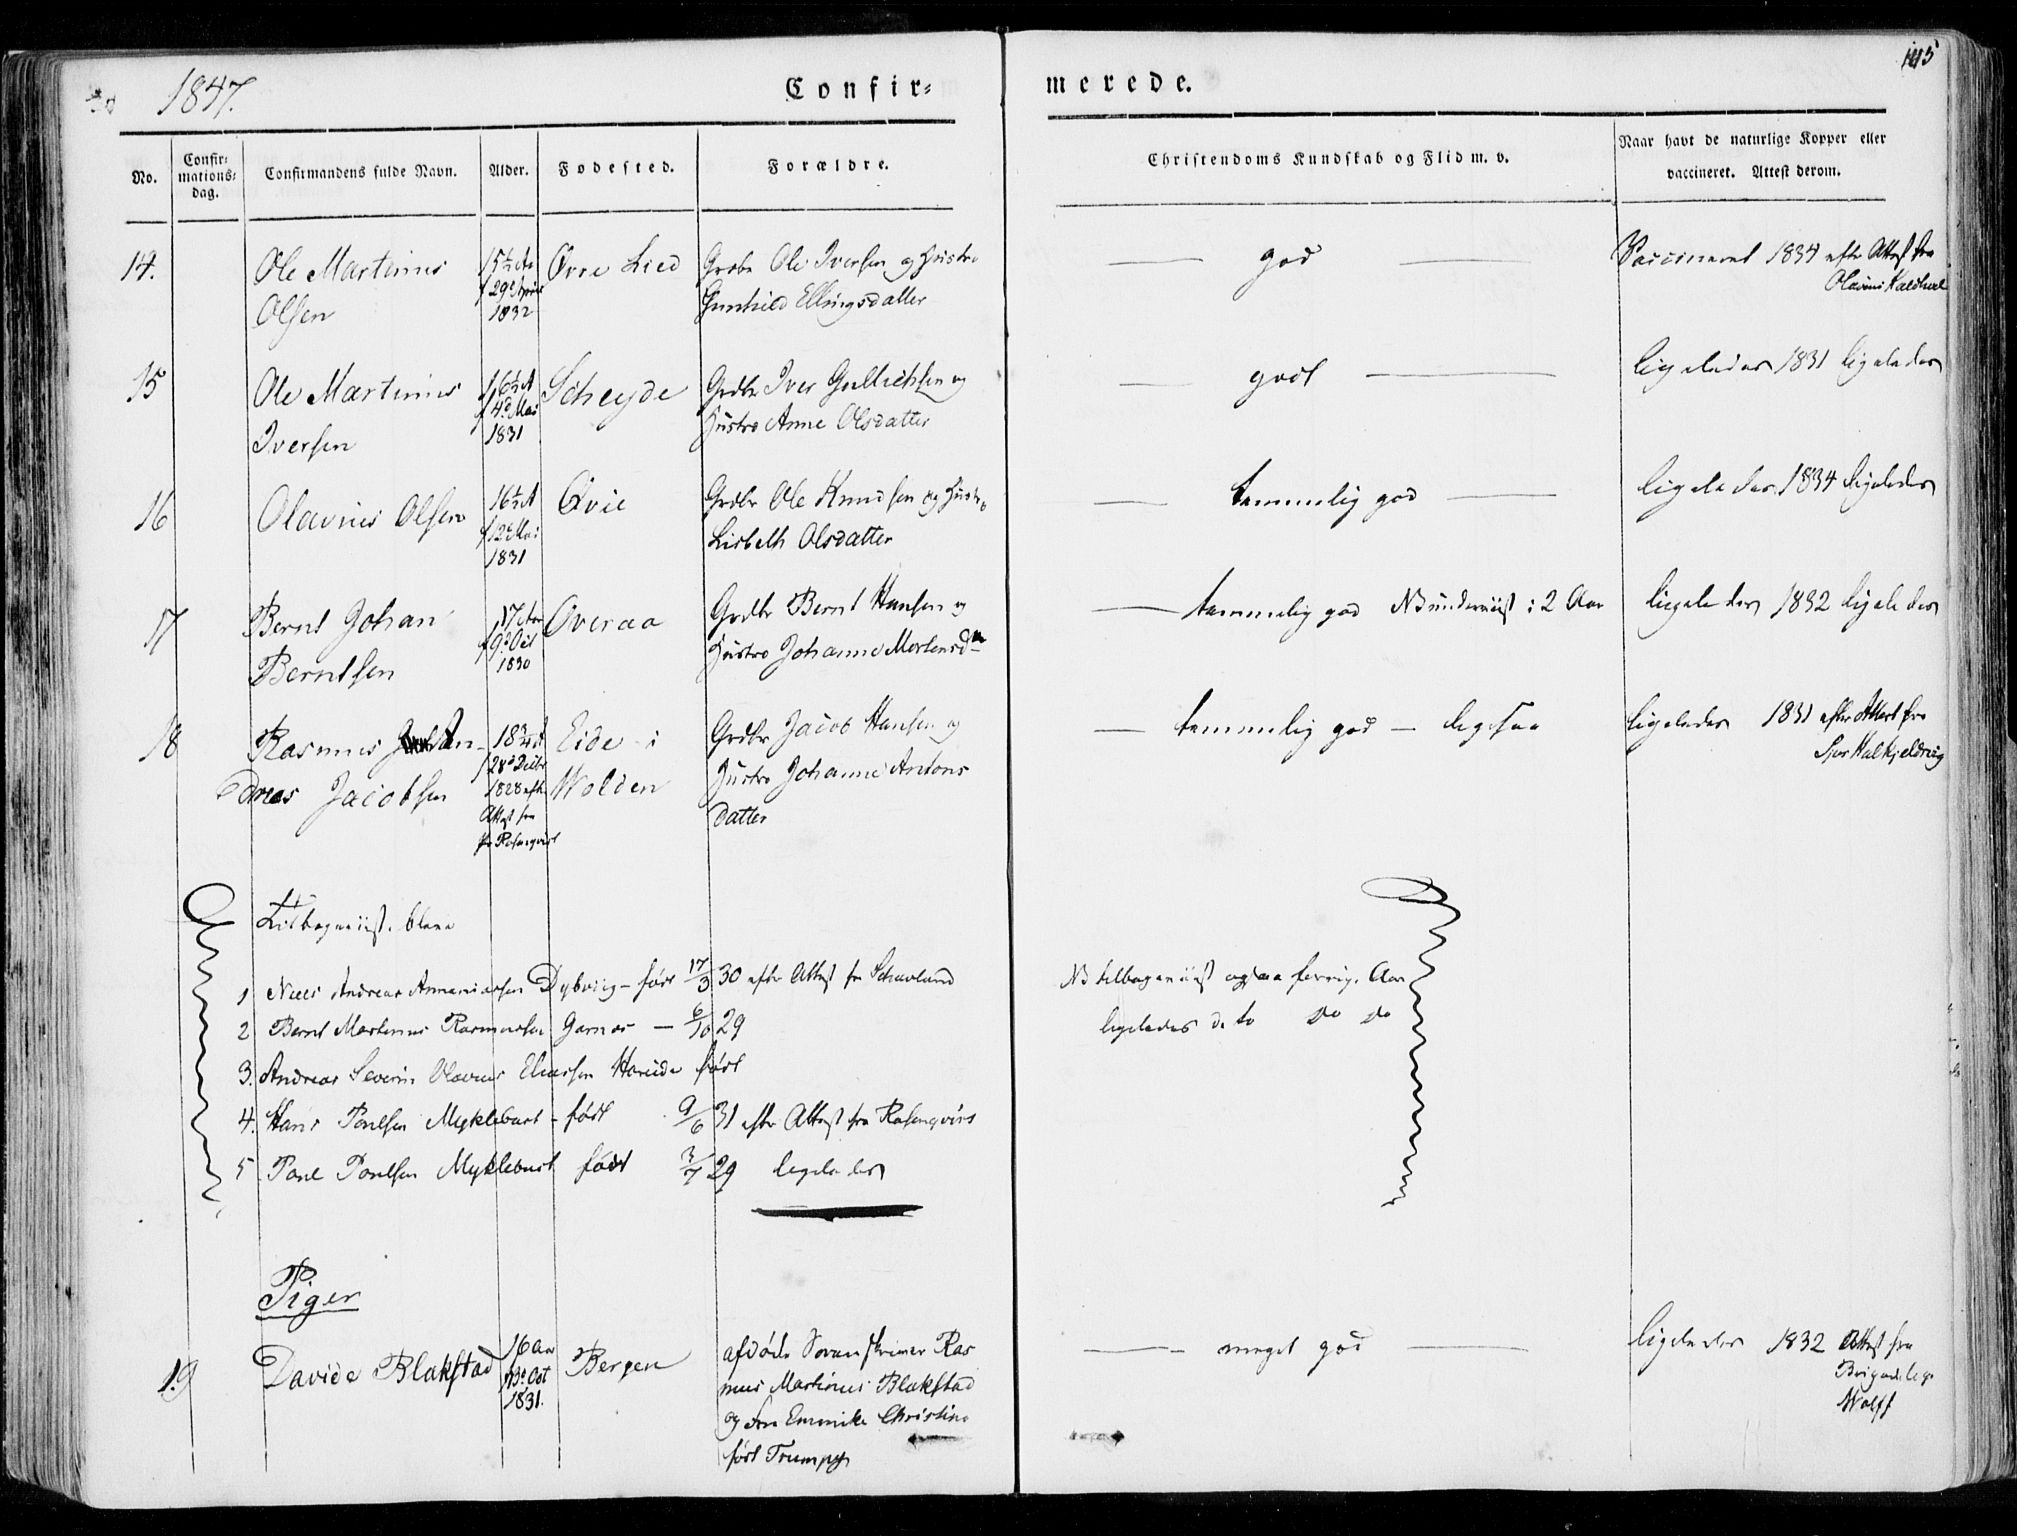 1847.
Confir-
merede.
145
No.
Confir-
mations-
dag.
Confirmandens fulde Navn.
Alder.
Fødested.
Forældre.
Christendoms Kundskab og Flid m. v.
Naar havt de naturlige Kopper eller
vaccineret. Attest derom.
14.
Ole Martinus
Olsen
15½ Aar
f 29de April
1832
Øvre Lied
Grdbr Ole Iversen og Hustro
Gunhild Ellingsdatter
god
Vaccineret 1834 efter Attest fra
Olavius Kaldhul
15
Ole Martinus
Iversen
16½ A
f 4de Mai
1831
Scheyde
Grdbr Iver Gullichsen og
Hustro Anne Olsdatter
godt
ligeledes 1831 ligeledes
16
Olavius Olsen
16½ A
f 12 Mai
1831
Qvie
Grdbr Ole Knudsen og Hustro
Lisbeth Olsdatter
temmelig god
ligeledes 1834 ligeledes
17
Bernt Johan
Berntsen
17 Aar
f 9de Oct
1830
Overaa
Grdbr Bernt Hansen og
Hustro Johanne Mortensdtr
temmelig god NB underviist i 2 Aar
ligeledes 1832 ligeledes
18
Rasmus An-
dreas Jacobsen
18¾ A
f 28de Decbr
1828 efter
Attest fra
Rosenqvist
Eide i
Wolden
Grdbr Jacob Hansen og
Hustro Johanne Antons
datter
temmelig god — ligesaa
ligeledes 1831 efter Attest fra
Sjur Halkjeldsvig
Tilbageviist. bleve
1 Niels Andreas Annaniassen Dybvig - født 17/3 30 efter Attest fra Schavland
NB tilbageviist ogsaa forrige Aar
2 Bernt Martinus Rasmussen Garnæs — 6/10 29
ligeledes dito Do Do
3. Andreas Severin Olavus Eliassen Hareide født
4. Hans Poulsen Myklebust - født 9/6 31 efter Attest fra Rosenqvist
5 Poul Poulsen Myklebust født 3/7 29 ligeledes
Piger
19
Davide Blakstad
16 Aar
f 13de Oct
1831.
Bergen
afdøde Sorenskriver Ras
mus Martinus Blakstad
og Fru Emmike Christine
født Trumpy
meget god
ligeledes 1832 Attest fra
Brigadelæge
Wolff